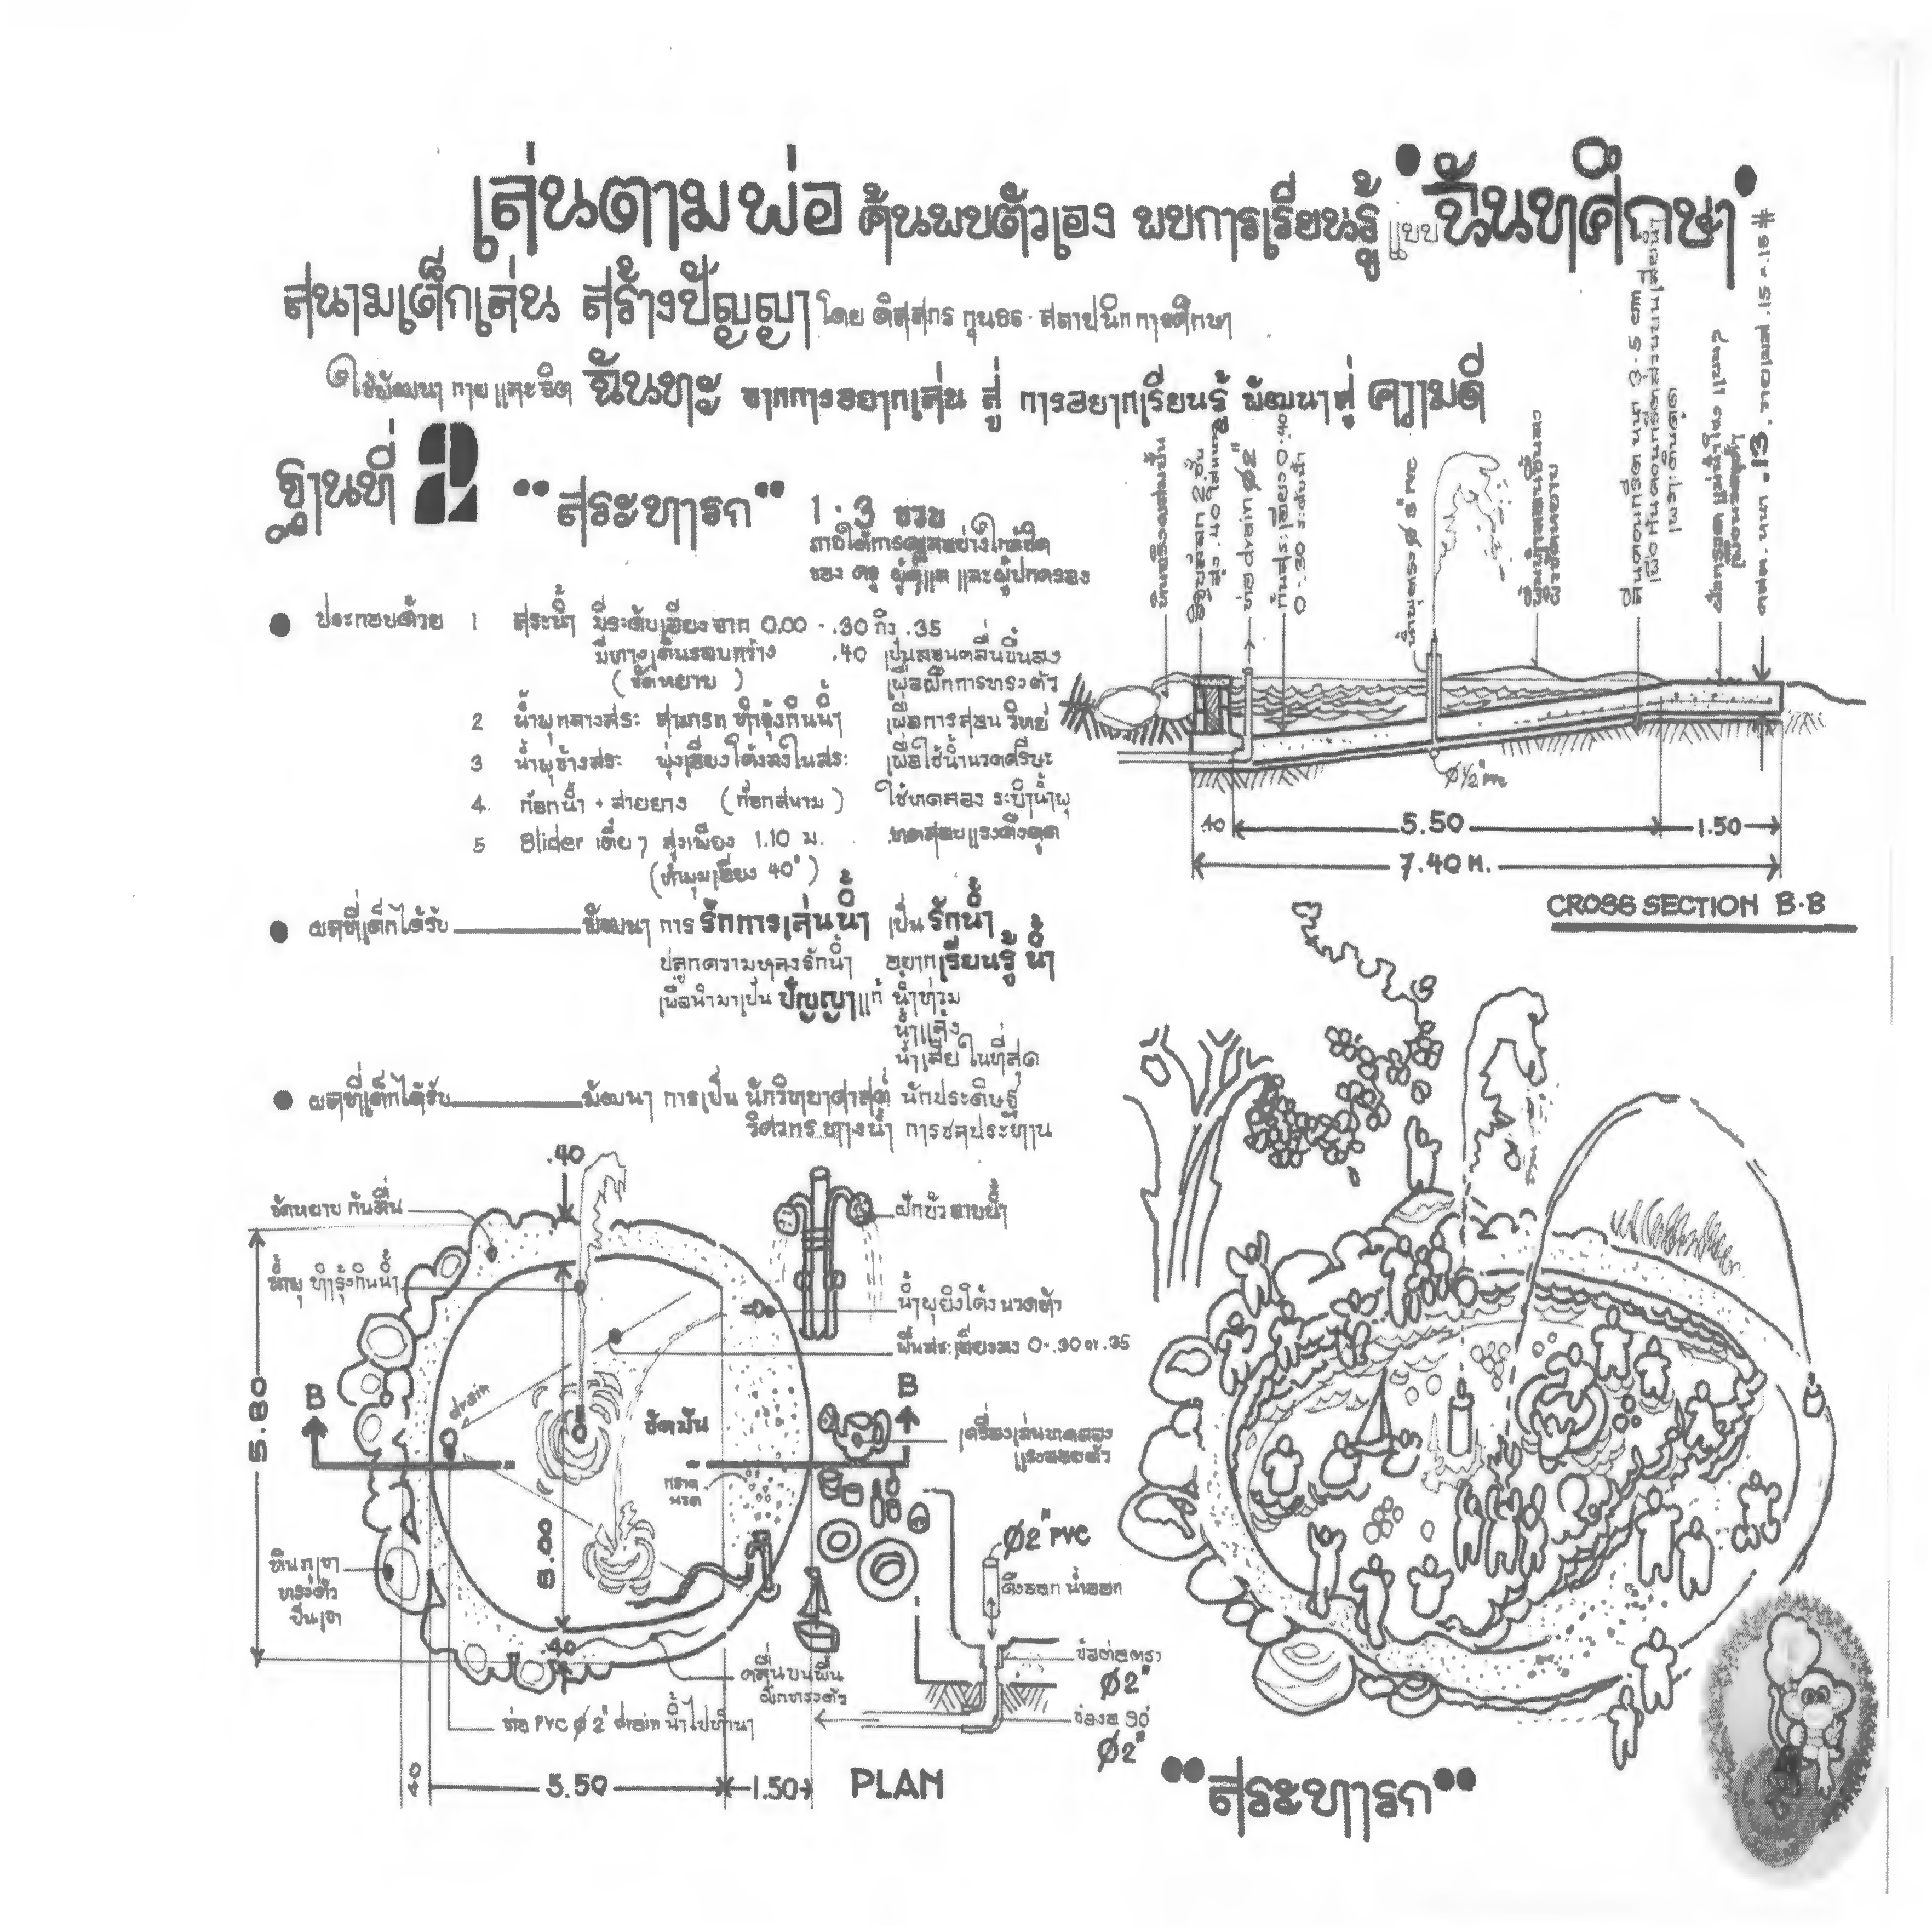 เล่นตามพ่อ ค้นพบตัวเอง พบการเรียนรู้ แบบ "ฉันทศึกษา"
สนามเด็กเล่น สร้างปัญญา โดย ดิสสกร กุนธร · สถาปนิกการศึกษา
ใช้พัฒนา กาย และ จิต ฉันทะ จากการอยากเล่น สู่ การอยากเรียนรู้ พัฒนาสู่ ความดี
ฐานที่ 2 "สระทารก" 1·3 ขวบ
ภายใต้การดูแลอย่างใกล้ชิด
ของ ครู ผู้ดูแล และผู้ปกครอง
ประกอบด้วย 1 สระน้ำ มีระดับเอียงจาก 0.00 - .30 ถึง .35
มีทางเดินรอบกว้าง .40 เป็นลอนคลื่นขึ้นลง
(ขัดหยาบ) เพื่อฝึกการทรงตัว
2 น้ำพุกลางสระ สามารถ ทำรุ้งกินน้ำ เพื่อการสอน วิทย์
3 น้ำพุข้างสระ พุ่งเอียงโค้งลงในสระ เพื่อใช้น้ำนวดศรีษะ
4. ก๊อกน้ำ + สายยาง (ก๊อกสนาม) ใช้ทดลอง ระบำน้ำพุ
5 Slider เตี้ยๆ สูงเพียง 1.10 ม. ทดสอบแรงดึงดูด
(ทำมุมเอียง 40°)
ผลที่เด็กได้รับ พัฒนา การ รักการเล่นน้ำ เป็น รักน้ำ
ปลูกความหลงรักน้ำ อยากเรียนรู้ น้ำ
เพื่อนำมาเป็น ปัญญาแก้ น้ำท่วม
น้ำแล้ง
น้ำเสีย ในที่สุด
ผลที่เด็กได้รับ พัฒนา การเป็น นักวิทยาศาสตร์ นักประดิษฐ์
วิศวกร ทางน้ำ การชลประทาน
ท่อ drain Ø2"
กันสระเอียง 0-.40
0-.30 ระดับน้ำ
น้ำพุตรง Ø ½" PVC
Ø½" PVC
.40 5.50 1.50
7.40 M.
CROSS SECTION B-B
.40
ขัดหยาบ กันลื่น
น้ำพุ ทำรุ้งกินน้ำ
ฝักบัว อาบน้ำ
น้ำพุยิงโค้ง นวดหัว
พื้นสระเอียงลง 0-.30 or .35
5.80
B
B
drain
ขัดมัน
กรวด
นวด
เครื่องเล่นทดลอง
แรงลอยตัว
5.00
Ø2" PVC
ดึงออก น้ำออก
หินภูเขา
ทรงตัว
ปีนเขา
.40
คลื่นบนพื้น
ฝึกทรงตัว
ข้อต่อตรง
Ø2"
ท่อ PVC Ø 2" drain น้ำไปทำนา
ข้องอ 90°
Ø2"
.40 5.50 1.50
PLAN
"สระทารก"